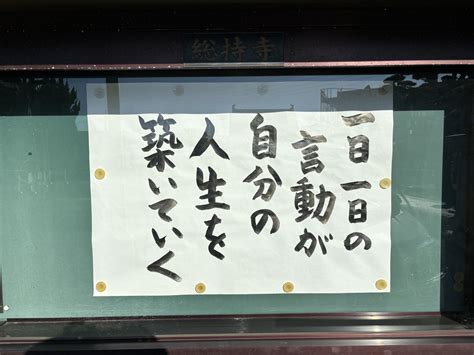 総持寺
一日一日の
言動が
自分の
人生を
築いていく